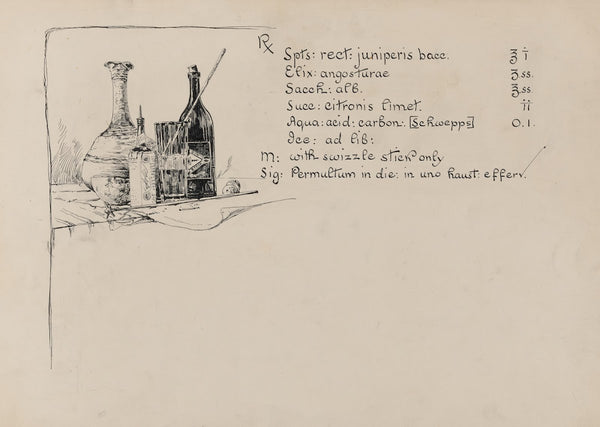 ℞ Spts: rect: juniperis bacc. ℥ i
Elix: angosturae ʒ.ss.
Sacch: alb. ℥.ss.
Succ: citronis limet. ii
Aqua: acid: carbon. [Schwepps] O.1.
Ice: ad lib:
M: with swizzle stick only
Sig: Permultum in die: in uno haust: efferv.